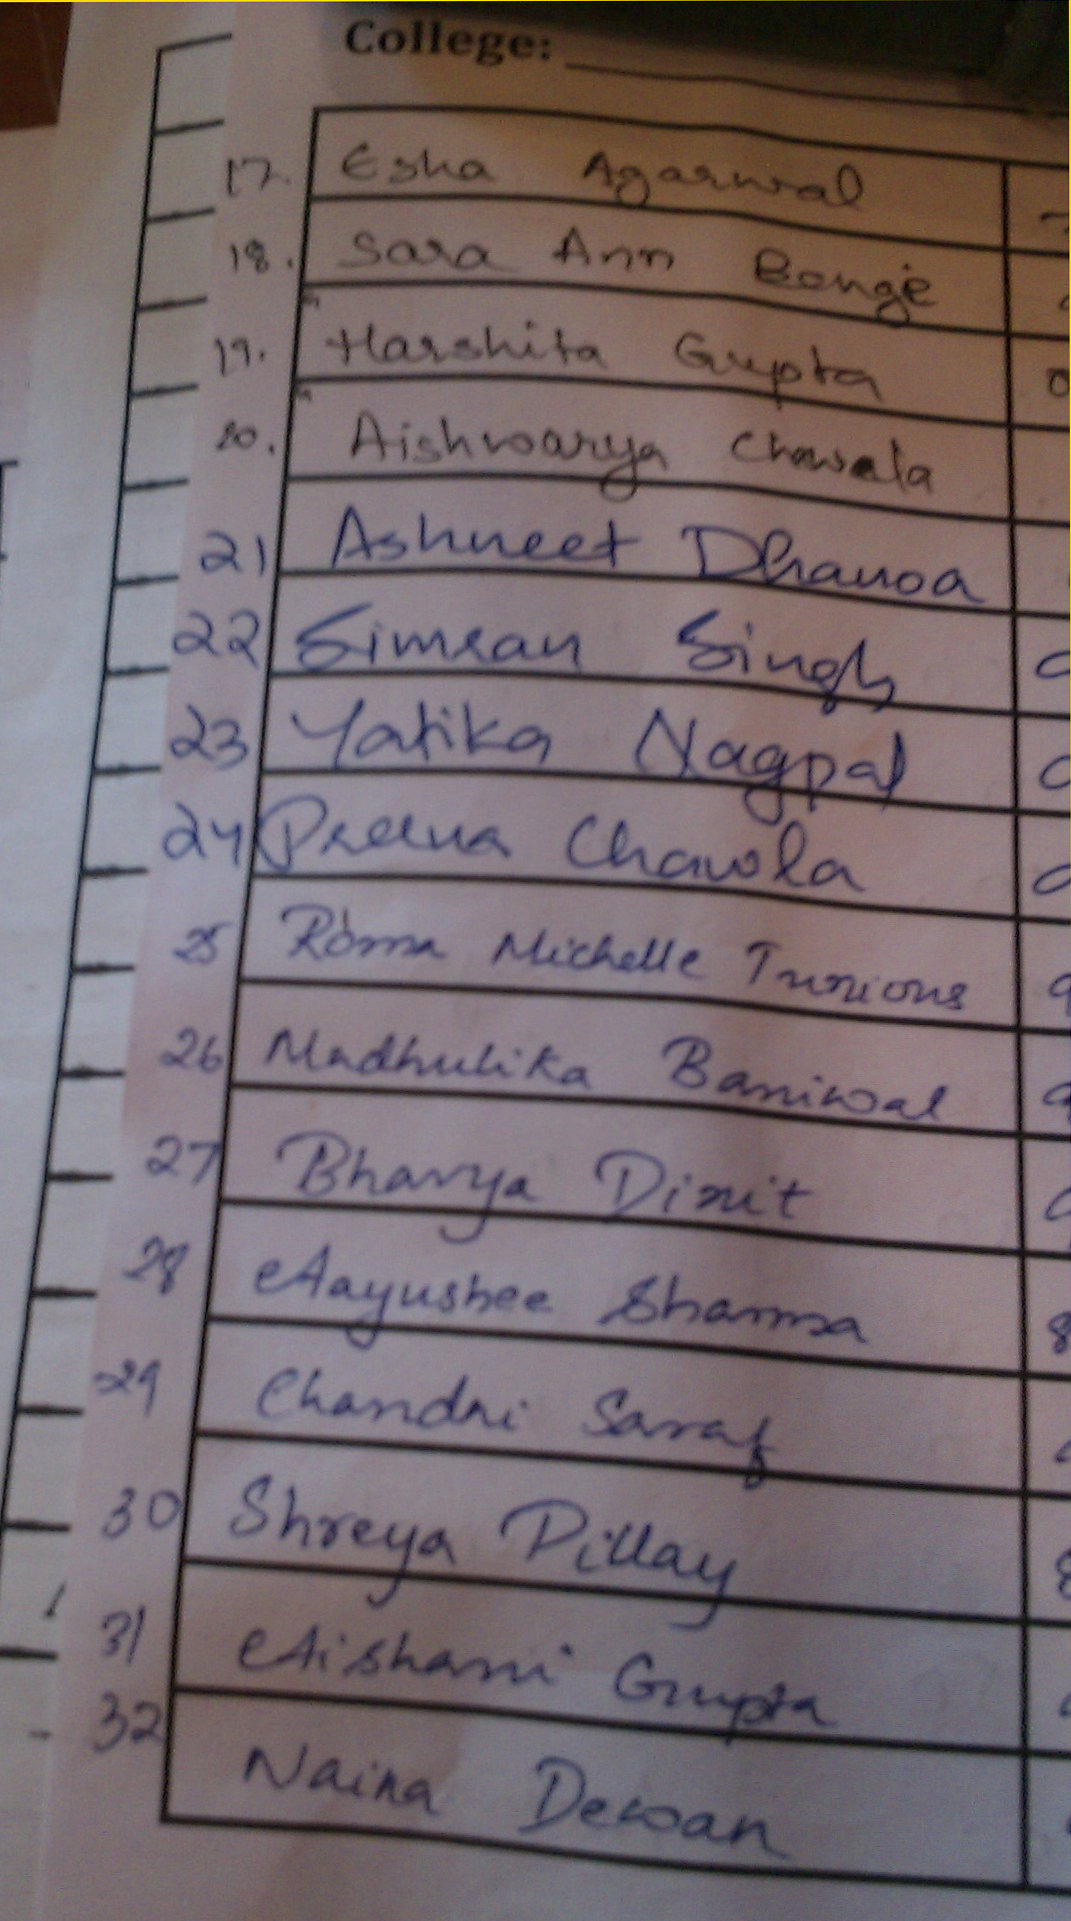 College:
17. Esha Agarwal
18. Sara Ann Bonge
19. Harshita Gupta
20. Aishwarya Chawala
21 Ashneet Dhanoa
22 Simran Singh
23 Yatika Nagpal
24 Prerna Chawla
25 Roma Michelle
26 Madhulika Baniwal
27 Bhavya Dixit
28 Aayushee Sharma
29 Chandni Saraf
30 Shreya Pillay
31 Aishani Gupta
32 Naina Dewan